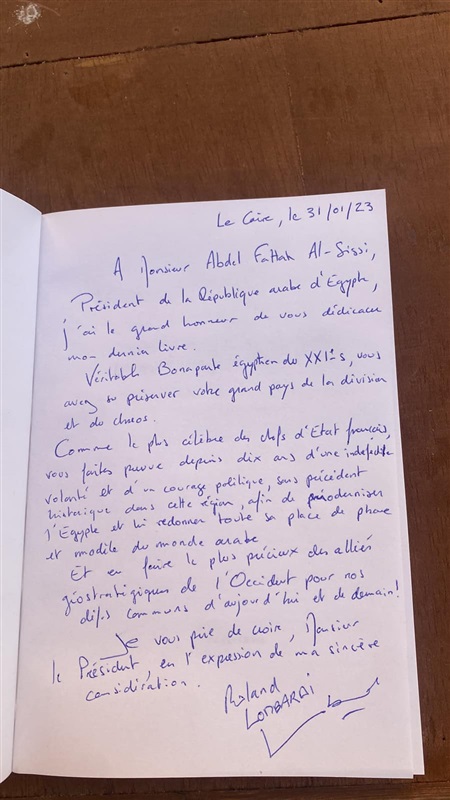 Le Caire, le 31/01/23
A Monsieur Abdel Fattah Al-Sissi,
Président de la République arabe d'Egypte,
j'ai le grand honneur de vous dédicacer
mon dernier livre.
Véritable Bonaparte égyptien du XXIe s, vous
avez su préserver votre grand pays de la division
et du chaos.
Comme le plus célèbre des chefs d'Etat français,
vous faites preuve depuis dix ans d'une indéfectible
volonté et d'un courage politique, sans précédent
historique dans cette région, afin de moderniser
l'Egypte et lui redonner toute sa place de phare
et modèle du monde arabe
Et en faire le plus précieux des alliés
géostratégiques de l'Occident pour nos
défis communs d'aujourd'hui et de demain!
Je vous prie de croire, Monsieur
le Président, en l'expression de ma sincère
considération.
Roland
LOMBARDI